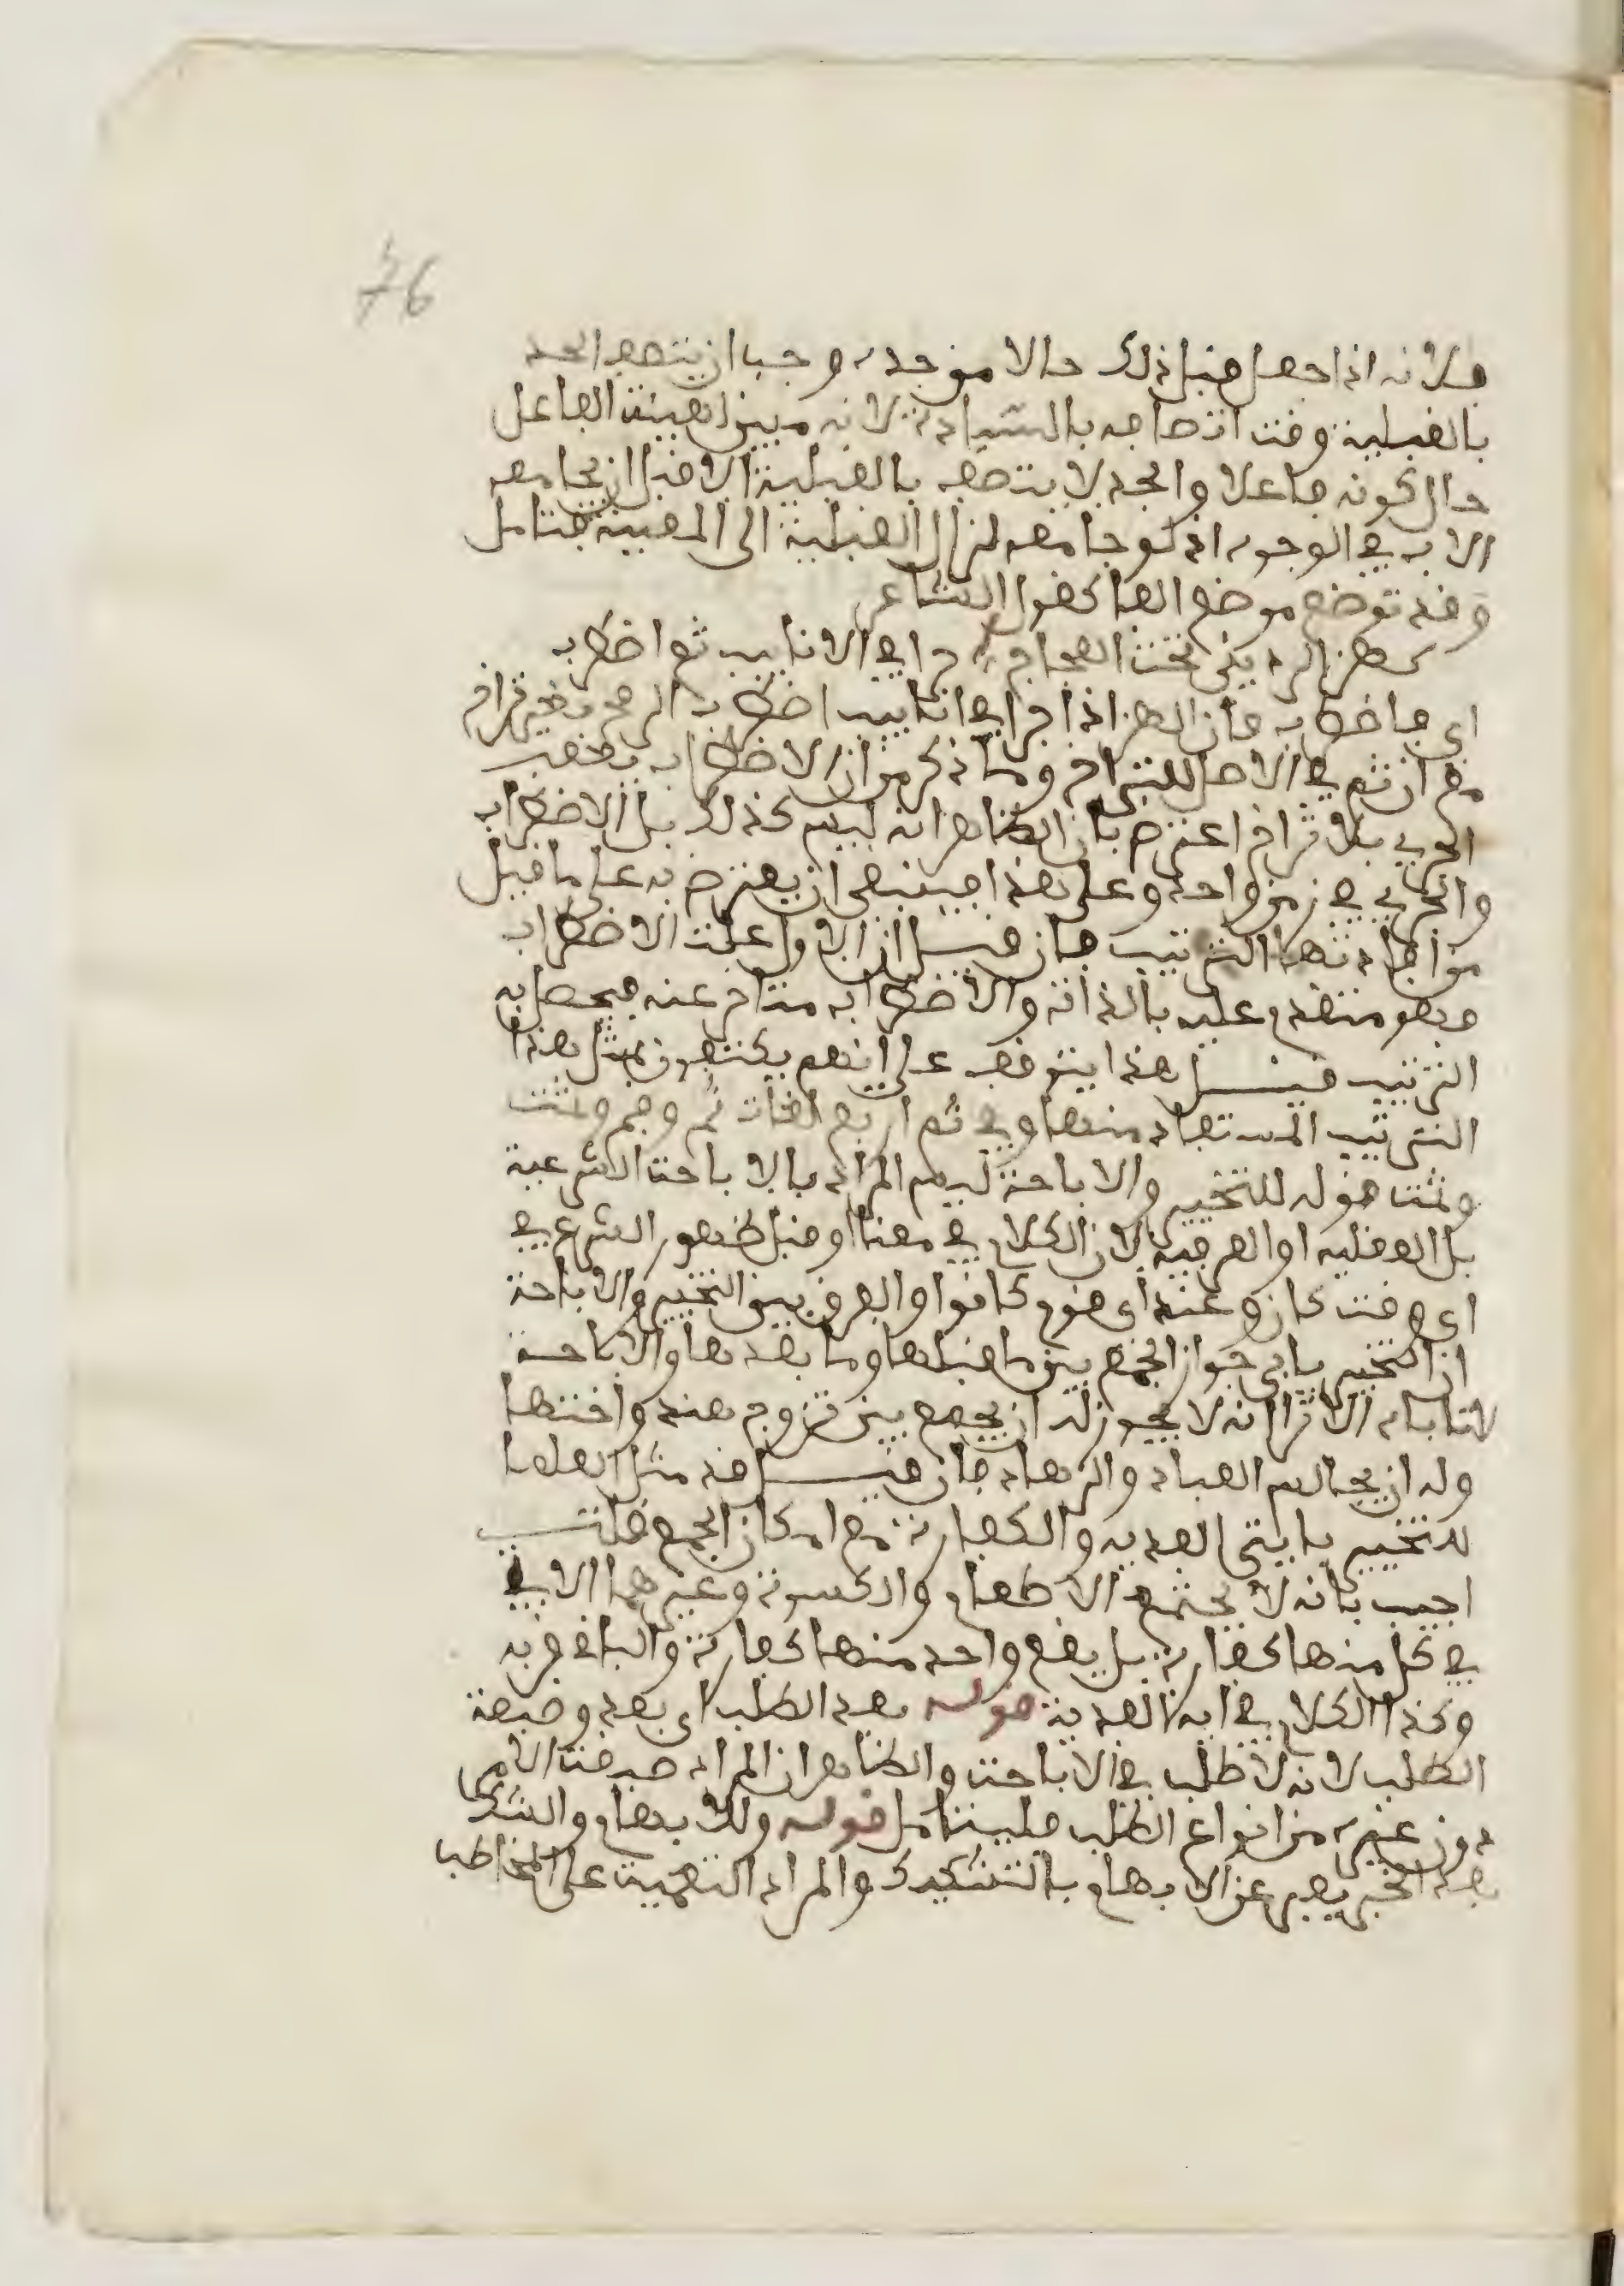 76
فلانه اذا جعل قبل ذلك حالا من جده وجب ان يتصف الجد
بالقبلية وقت اتصافه بالسيادة لانه مبين لهيئة الفاعل
حال كونه فاعلا والجد لا يتصف بالقبلية الا قبل ان يجامعه
الاب في الوجود اذ لو جامعه لزال القبلية الى المعية فتامل
وقد توضع موضع الفا كقول الشاعر
كهز الرديني تحت العجاج جرا في الانابيب ثم اضطرب
اي فاضطرب فان الهز اذا جرا في انابيب اضطرب الرمح من غير تراخ
مع ان ثم في الاصل للتراخ وما ذكر من ان الاضطراب يعقب
الجري بلا تراخ اعترض بان الظاهر انه ليس كذلك بل الاضطراب
والجري في زمن واحد وعلى هذا فينبغي ان يعترض به على ما قيل
من افادتها الترتيب فان قيل ان الاول علة الاضطراب
وهو متقدم عليه بالذات والاضطراب متاخر عنه فيحصل به
الترتيب قيل هذا يتوقف على انهم يكتفون بمثل هذا
الترتيب المستفاد منها وفي ثم اربع لغات ثم وفم وثمت
وثمت قوله للتخيير والاباحة ليس المراد بالاباحة الشرعية
بل العقلية او العرفية لان الكلام في معنا او قبل ظهور الشرع في
اي وقت كان وعند اي قوم كانوا والفرق بين التخيير والاباحة
ان التخيير يابى جواز الجمع بين ما قبلها وما بعدها والاباحة
لا تاباه الا ترا انه لا يجوز له ان يجمع بين تزوج هند واختها
وله ان يجالس العباد والزهاد فان قيل قد مثل العلما
للتخيير بايتى الفدية والكفارة مع امكان الجمع قلت
اجيب بانه لا يجتمع الاطعام والكسوة وغيرهما الاتي
في كل منها كفارة بل يقع واحد منها كفارة والباقي قربة
وكذا الكلام في اية الفدية قوله بعد الطلب اي بعد وصيغة
الطلب لانه لا طلب في الاباحة والظاهر ان المراد صيغة الامر
دون غيره من انواع الطلب فليتامل قوله وللابهام والشك
بعد الخبر يعبر عن الابهام بالتشكيك والمراد التعمية على المخاطب